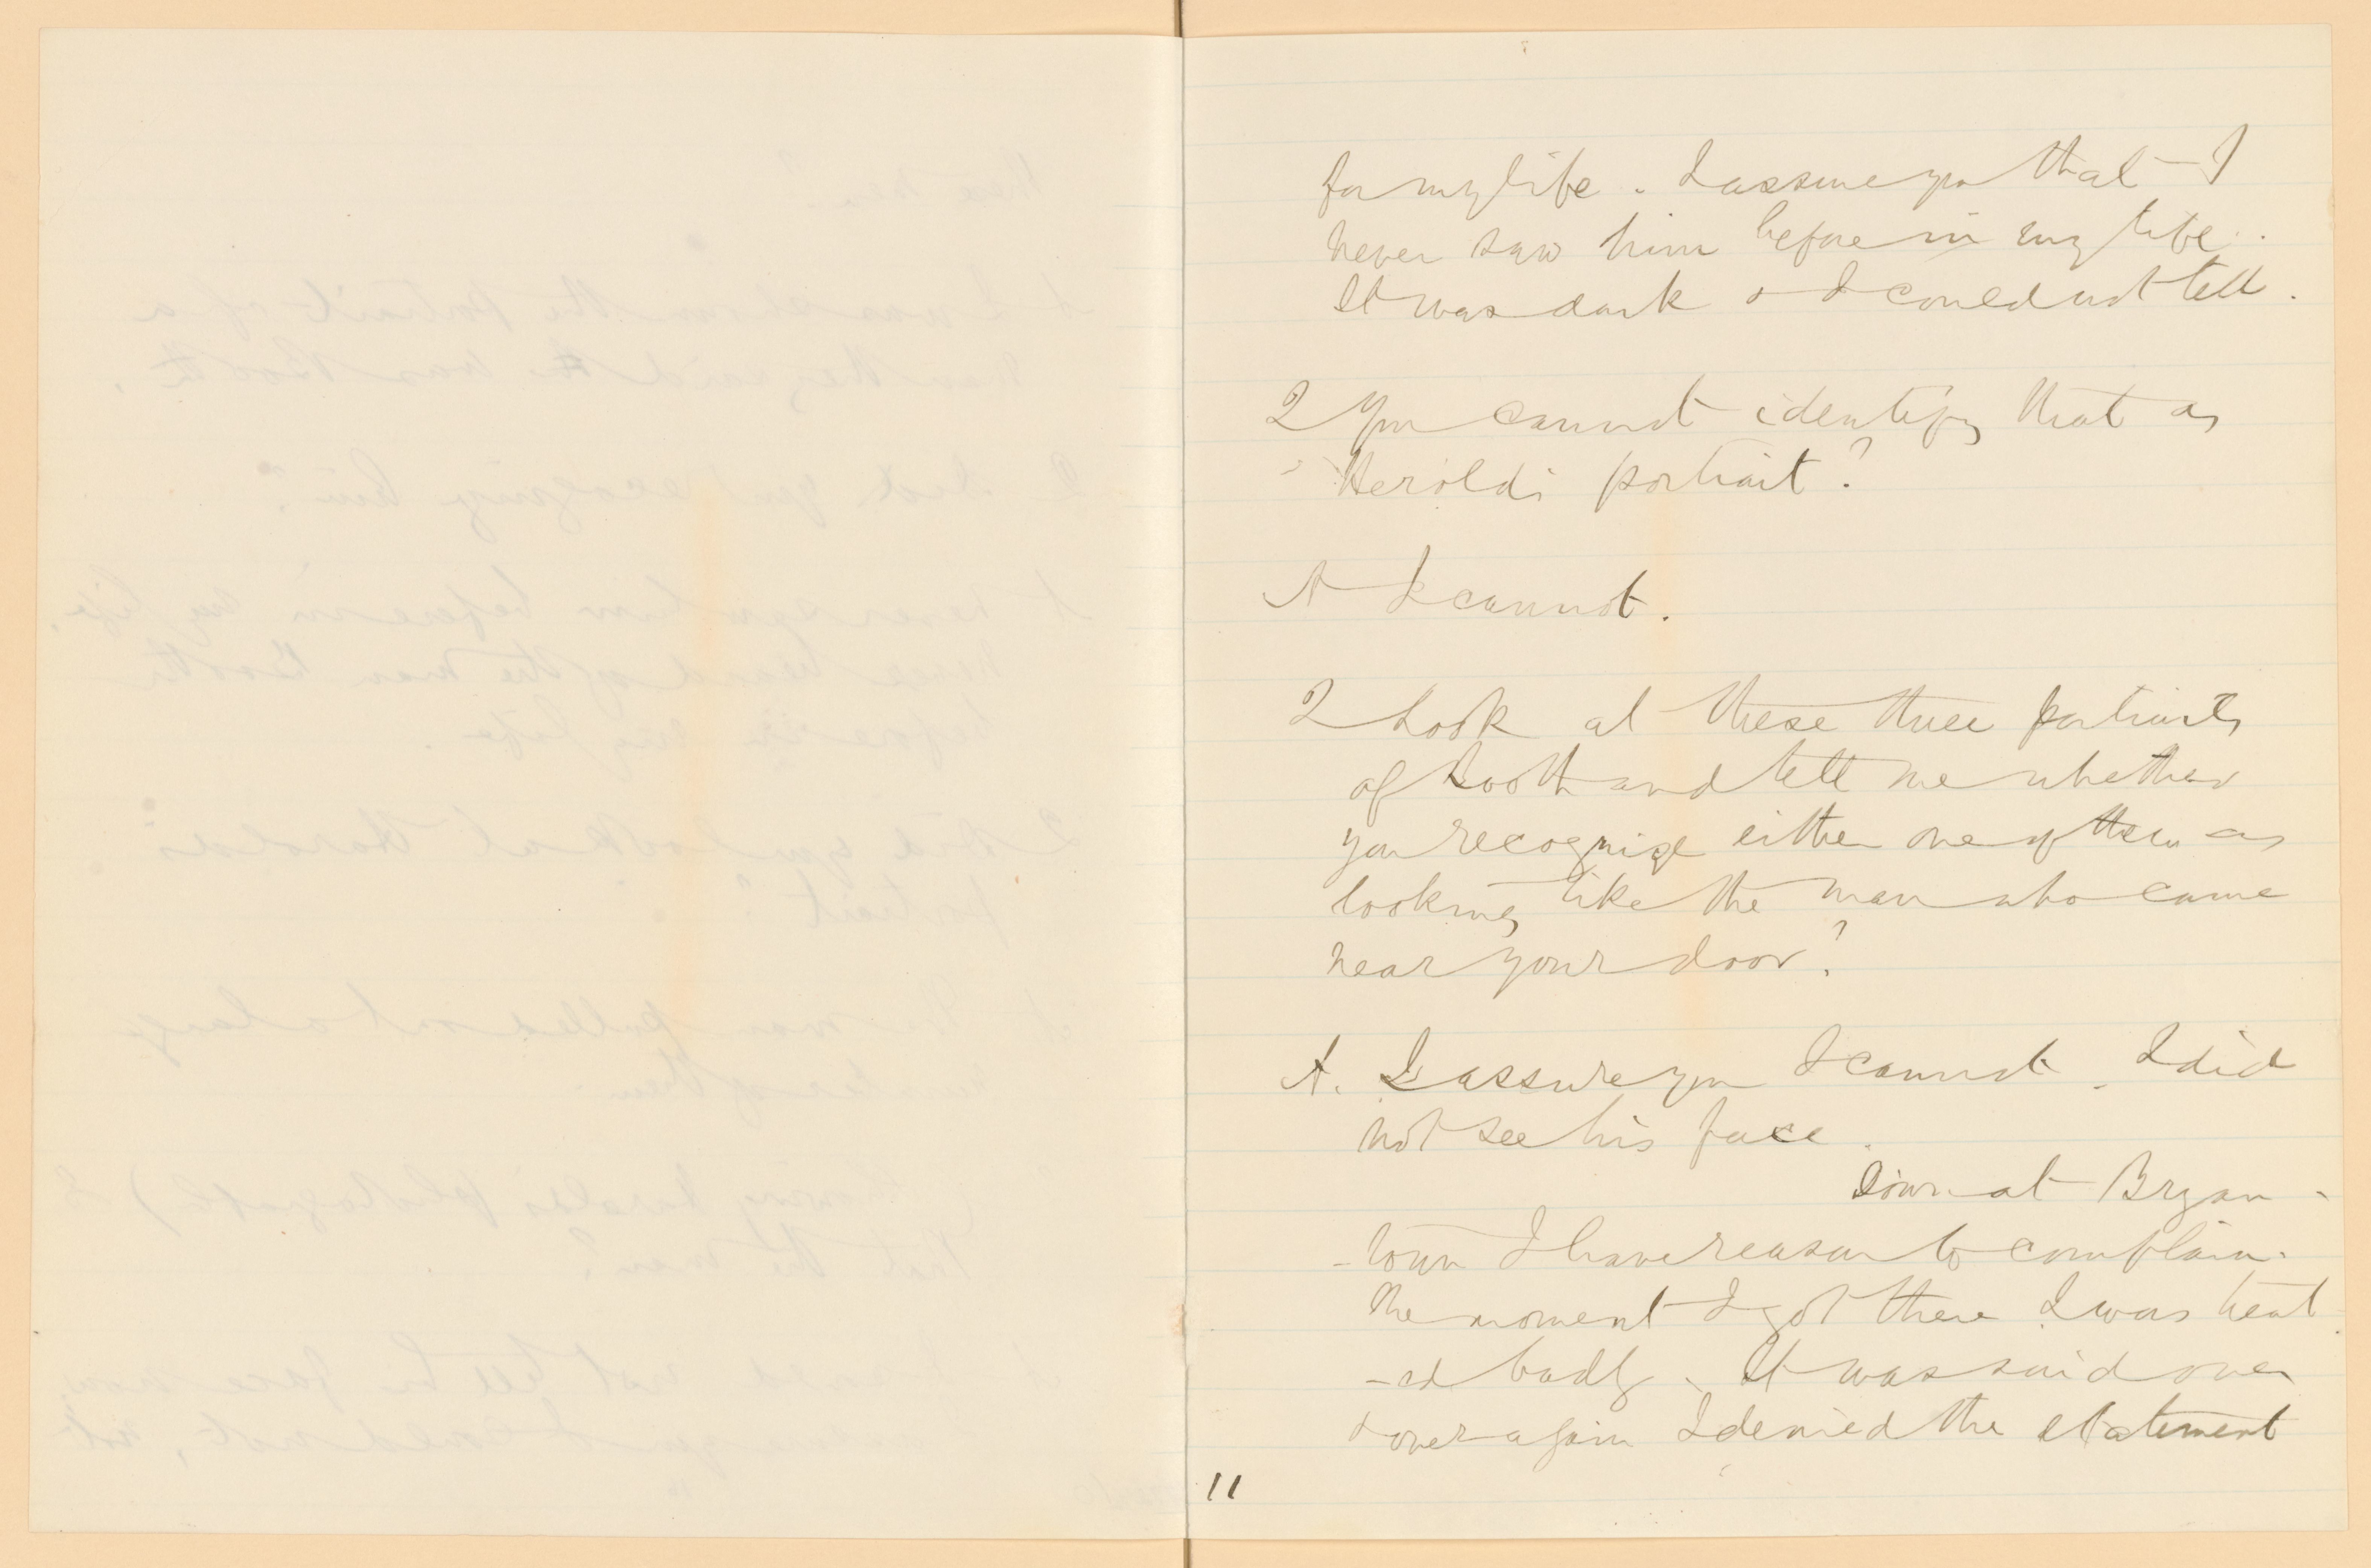 for my life. I assure you that I
never saw him before in my life.
It was dark & I could not tell.
Q You cannot identify that as
Herold's portrait?
A I cannot.
Q Look at these three portraits
of Booth and tell me whether
you recognize either one of them as
looking like the man who came
near your door?
A. I assure you I cannot. I did
not see his face.
Down at Bryan-
-town I have reason to complain.
The moment I got there I was treat-
-ed badly. It was said over
& over again I denied the statement
11